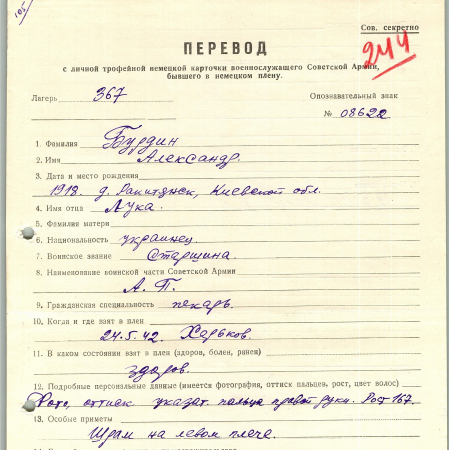 105
Сов. секретно
244
ПЕРЕВОД
с личной трофейной немецкой карточки военнослужащего Советской Армии,
бывшего в немецком плену.
Лагерь 367 Опознавательный знак
№ 08622
1. Фамилия Бурдин
2. Имя Александр.
3. Дата и место рождения
1918. д. Ракитянск, Киевской обл.
4. Имя отца Лука.
5. Фамилия матери
6. Национальность украинец
7. Воинское звание Старшина
8. Наименование воинской части Советской Армии
А. П.
9. Гражданская специальность пекарь.
10. Когда и где взят в плен
24.5.42. Харьков.
11. В каком состоянии взят в плен (здоров, болен, ранен)
здоров.
12. Подробные персональные данные (имеется фотография, оттиск пальцев, рост, цвет волос)
Фото, оттиск указат. пальца правой руки. Рост 167.
13. Особые приметы
Шрам на левом плече.